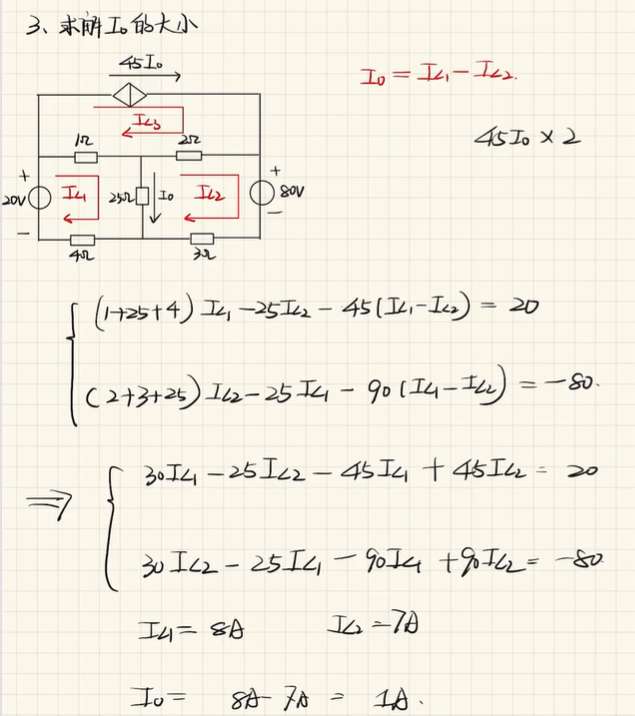 3、求解I₀的大小
45I₀
I₀ = IL₁ - IL₂.
IL₃
45I₀ × 2
1Ω 2Ω
+ +
20V IL₁ 25Ω I₀ IL₂ 80V
- -
4Ω 3Ω
(1+25+4) IL₁ - 25IL₂ - 45(IL₁ - IL₂) = 20
(2+3+25) IL₂ - 25 IL₁ - 90(IL₁ - IL₂) = -80.
⇒ 30IL₁ - 25IL₂ - 45IL₁ + 45IL₂ = 20
30IL₂ - 25IL₁ - 90IL₁ + 90IL₂ = -80
IL₁ = 8A IL₂ = 7A
I₀ = 8A - 7A = 1A.